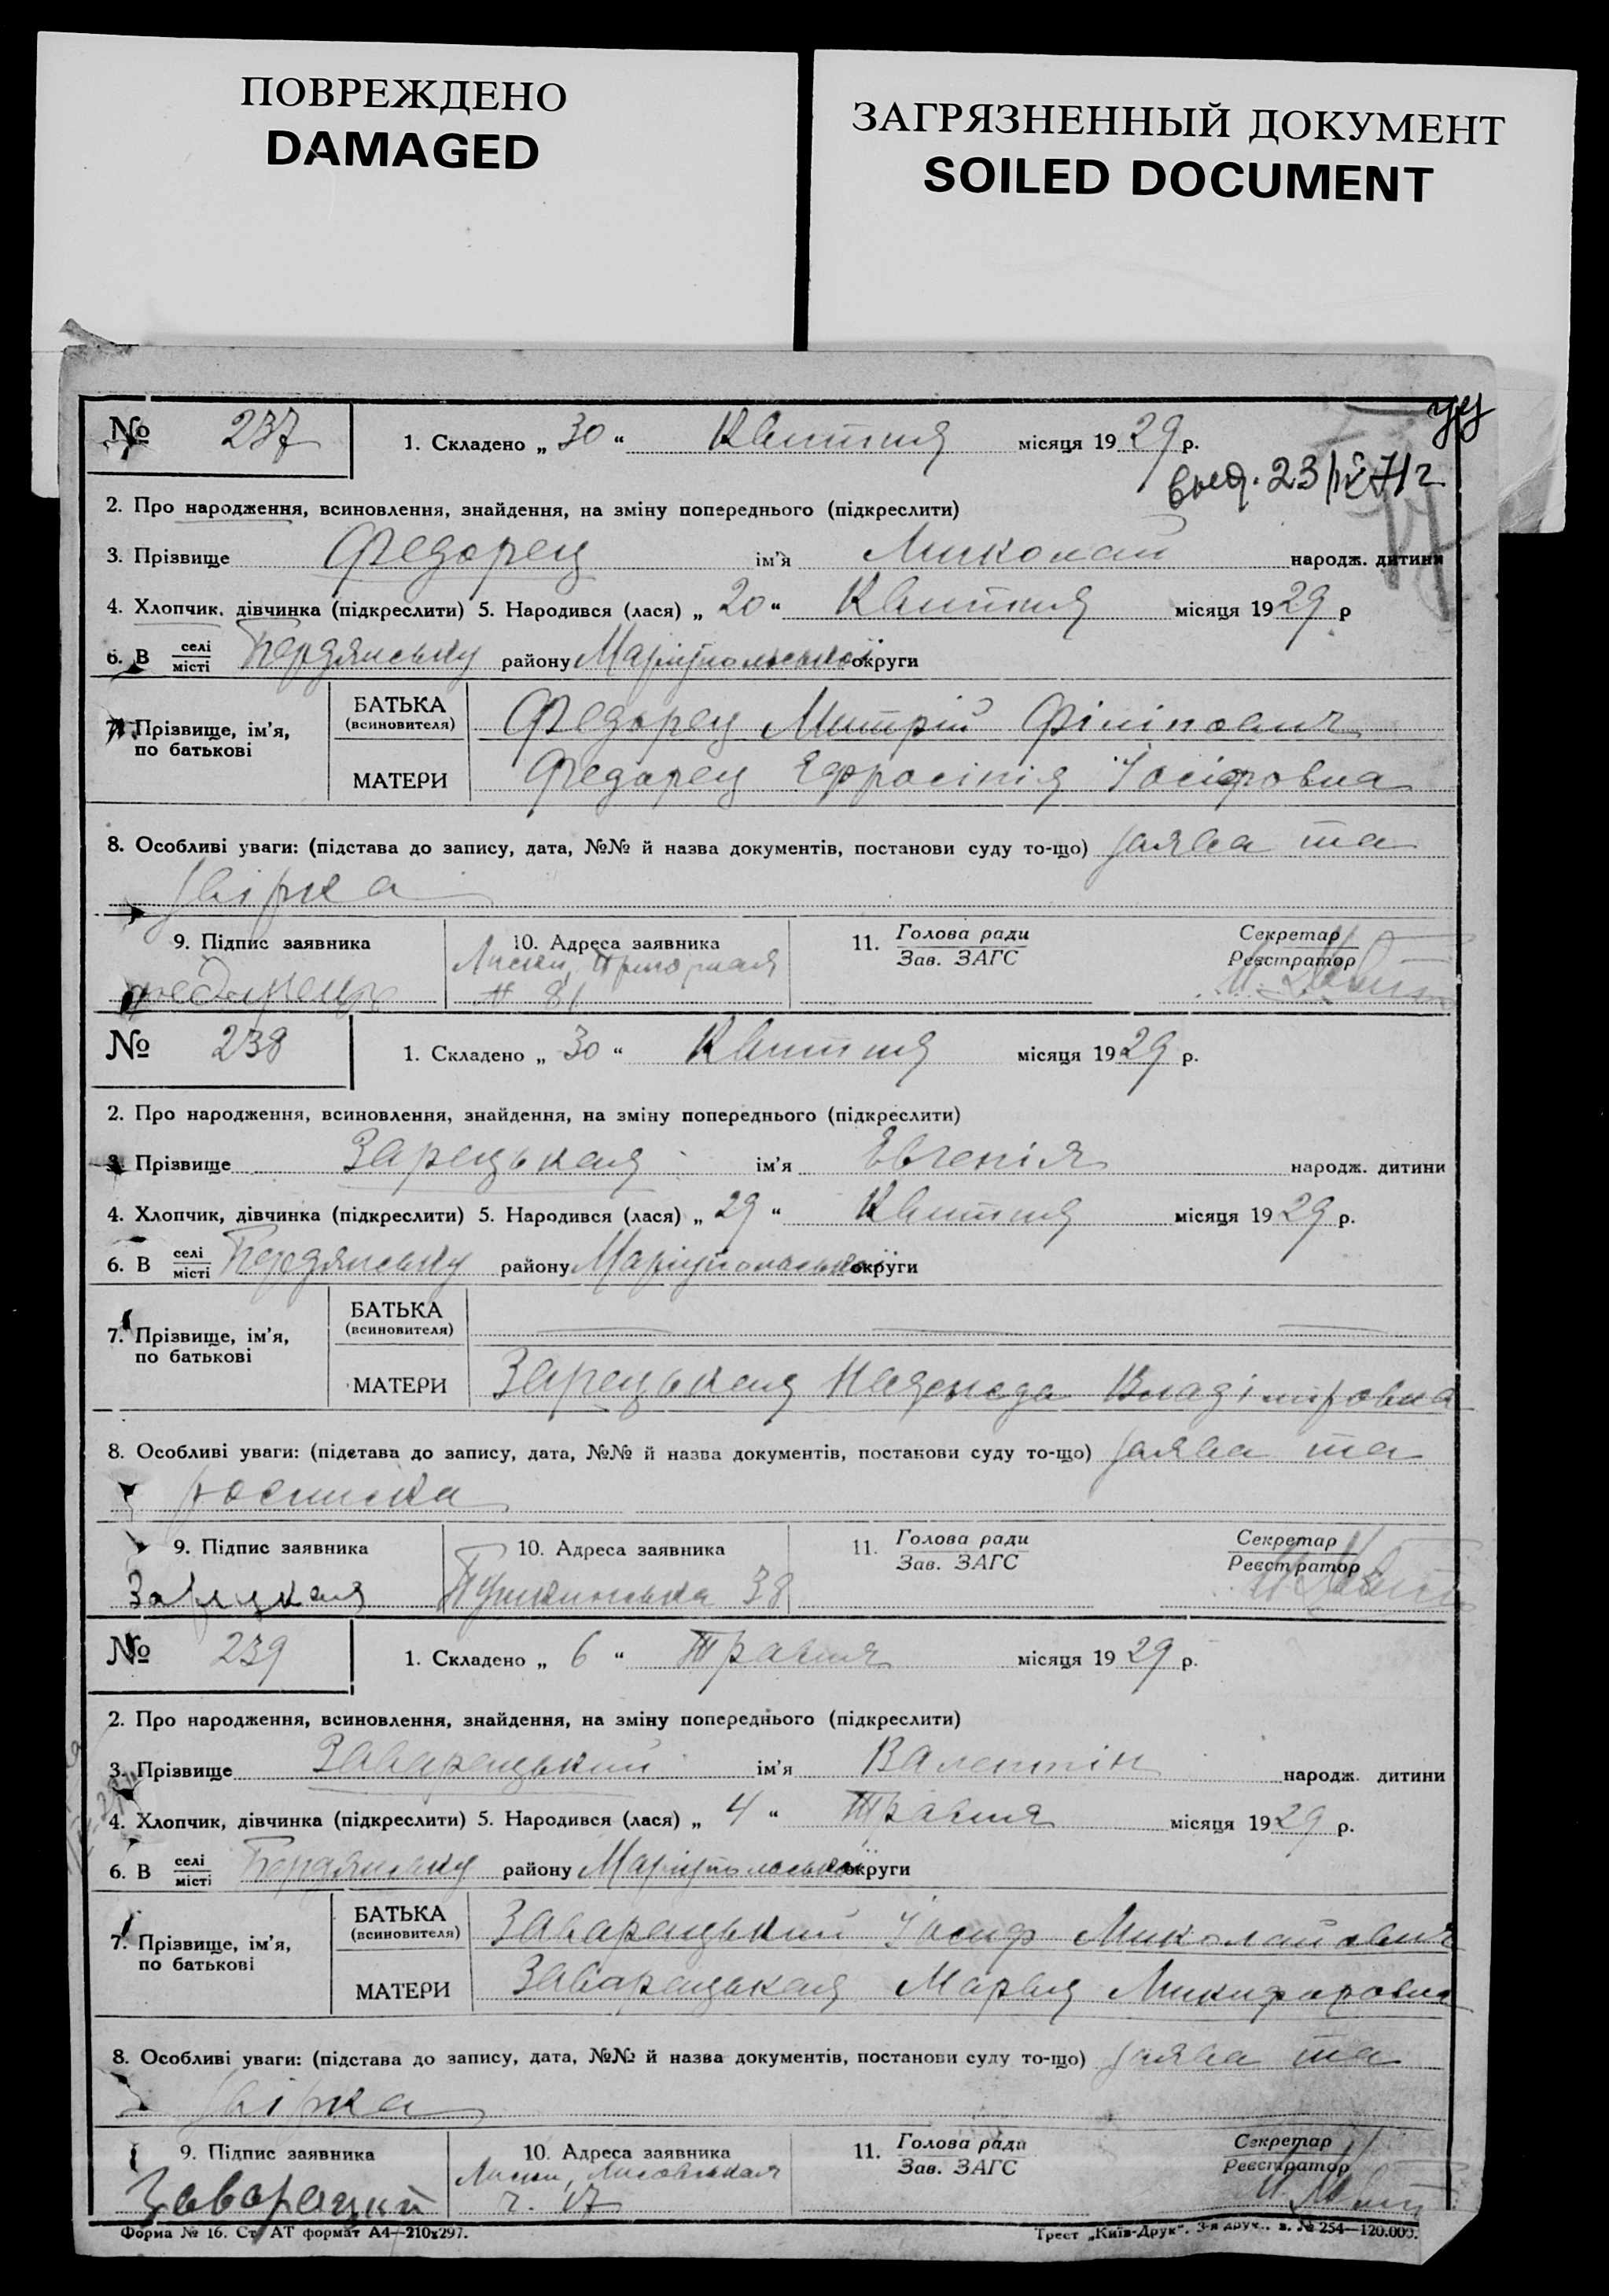 ПОВРЕЖДЕНО
DAMAGED
ЗАГРЯЗНЕННЫЙ ДОКУМЕНТ
SOILED DOCUMENT
№ 237 1. Складено „ 30 “ Квитня місяця 1929 р.
2. Про народження, всиновлення, знайдення, на зміну попереднього (підкреслити)
3. Прізвище Федорец ім'я Миколай народж. дитини
4. Хлопчик, дівчинка (підкреслити) 5. Народився (лася) „ 20 “ Квитня місяця 1929 р
6. В селі місті Бердянську району Маріупольської округи
7. Прізвище, ім'я, по батькові
БАТЬКА (всиновителя) Федорец Митрій Філіпович
МАТЕРИ Федорец Ефросінія Йосіфовна
8. Особливі уваги: (підстава до запису, дата, №№ й назва документів, постанови суду то-що) заява та
звірка
9. Підпис заявника 10. Адреса заявника 11. Голова ради Зав. ЗАГС Секретар Реєстратор
Лиски,
№ 81
№ 238 1. Складено „ 30 “ Квитня місяця 1929 р.
2. Про народження, всиновлення, знайдення, на зміну попереднього (підкреслити)
3. Прізвище Зарецькая ім'я Євгенія народж. дитини
4. Хлопчик, дівчинка (підкреслити) 5. Народився (лася) „ 29 “ Квитня місяця 1929 р.
6. В селі місті Бердянську району Маріупольської округи
7. Прізвище, ім'я, по батькові
БАТЬКА (всиновителя)
МАТЕРИ Зарецькая Надежда Владіміровна
8. Особливі уваги: (підстава до запису, дата, №№ й назва документів, постанови суду то-що) заява та
росписка
9. Підпис заявника 10. Адреса заявника 11. Голова ради Зав. ЗАГС Секретар Реєстратор
Зарецкая Пушкинська 38
№ 239 1. Складено „ 6 “ Травня місяця 1929 р.
2. Про народження, всиновлення, знайдення, на зміну попереднього (підкреслити)
3. Прізвище Заварецький ім'я Валентін народж. дитини
4. Хлопчик, дівчинка (підкреслити) 5. Народився (лася) „ 4 “ Травня місяця 1929 р.
6. В селі місті Бердянську району Маріупольської округи
7. Прізвище, ім'я, по батькові
БАТЬКА (всиновителя) Заварецький Йосиф Миколайович
МАТЕРИ Заварецькая Марья Микифоровна
8. Особливі уваги: (підстава до запису, дата, №№ й назва документів, постанови суду то-що) заява та
звірка
9. Підпис заявника 10. Адреса заявника 11. Голова ради Зав. ЗАГС Секретар Реєстратор
Заварецкий Лиски,
ч. 17
Форма № 16. Ст АТ формат А4—210х297. Трест „Київ-Друк“. 3-я друк., з. № 254—120.000.